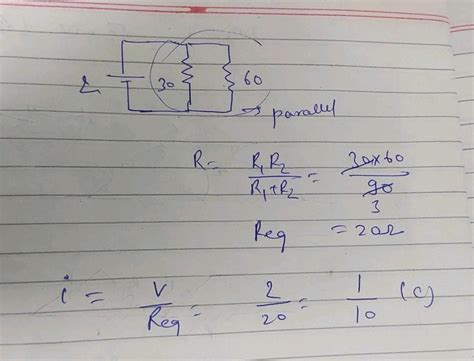 2
30
60
→ parallel
R = R₁R₂ / R₁+R₂ = 30×60 / 90 3
Req = 20Ω
i = V / Req = 2 / 20 = 1 / 10 (C)